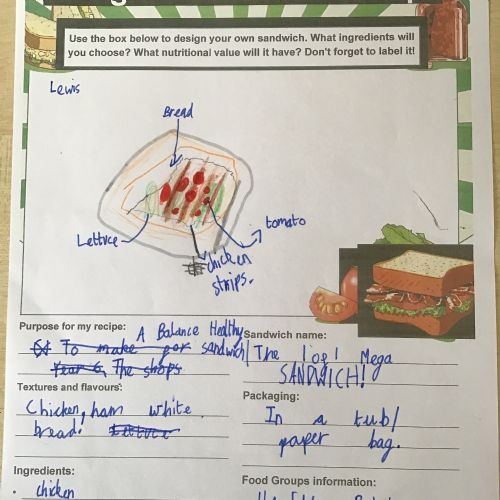 Use the box below to design your own sandwich. What ingredients will
you choose? What nutritional value will it have? Don't forget to label it!
Lewis
Bread
Lettuce
tomato
chicken
strips.
Purpose for my recipe: A Balance Healthy
To make for sandwich
Year 6, The shops
Sandwich name:
The 1 of 1 Mega
SANDWICH!
Textures and flavours:
Chicken, ham white
bread! Lettuce
Packaging:
In a tub/
paper bag.
Ingredients:
. chicken
Food Groups information: